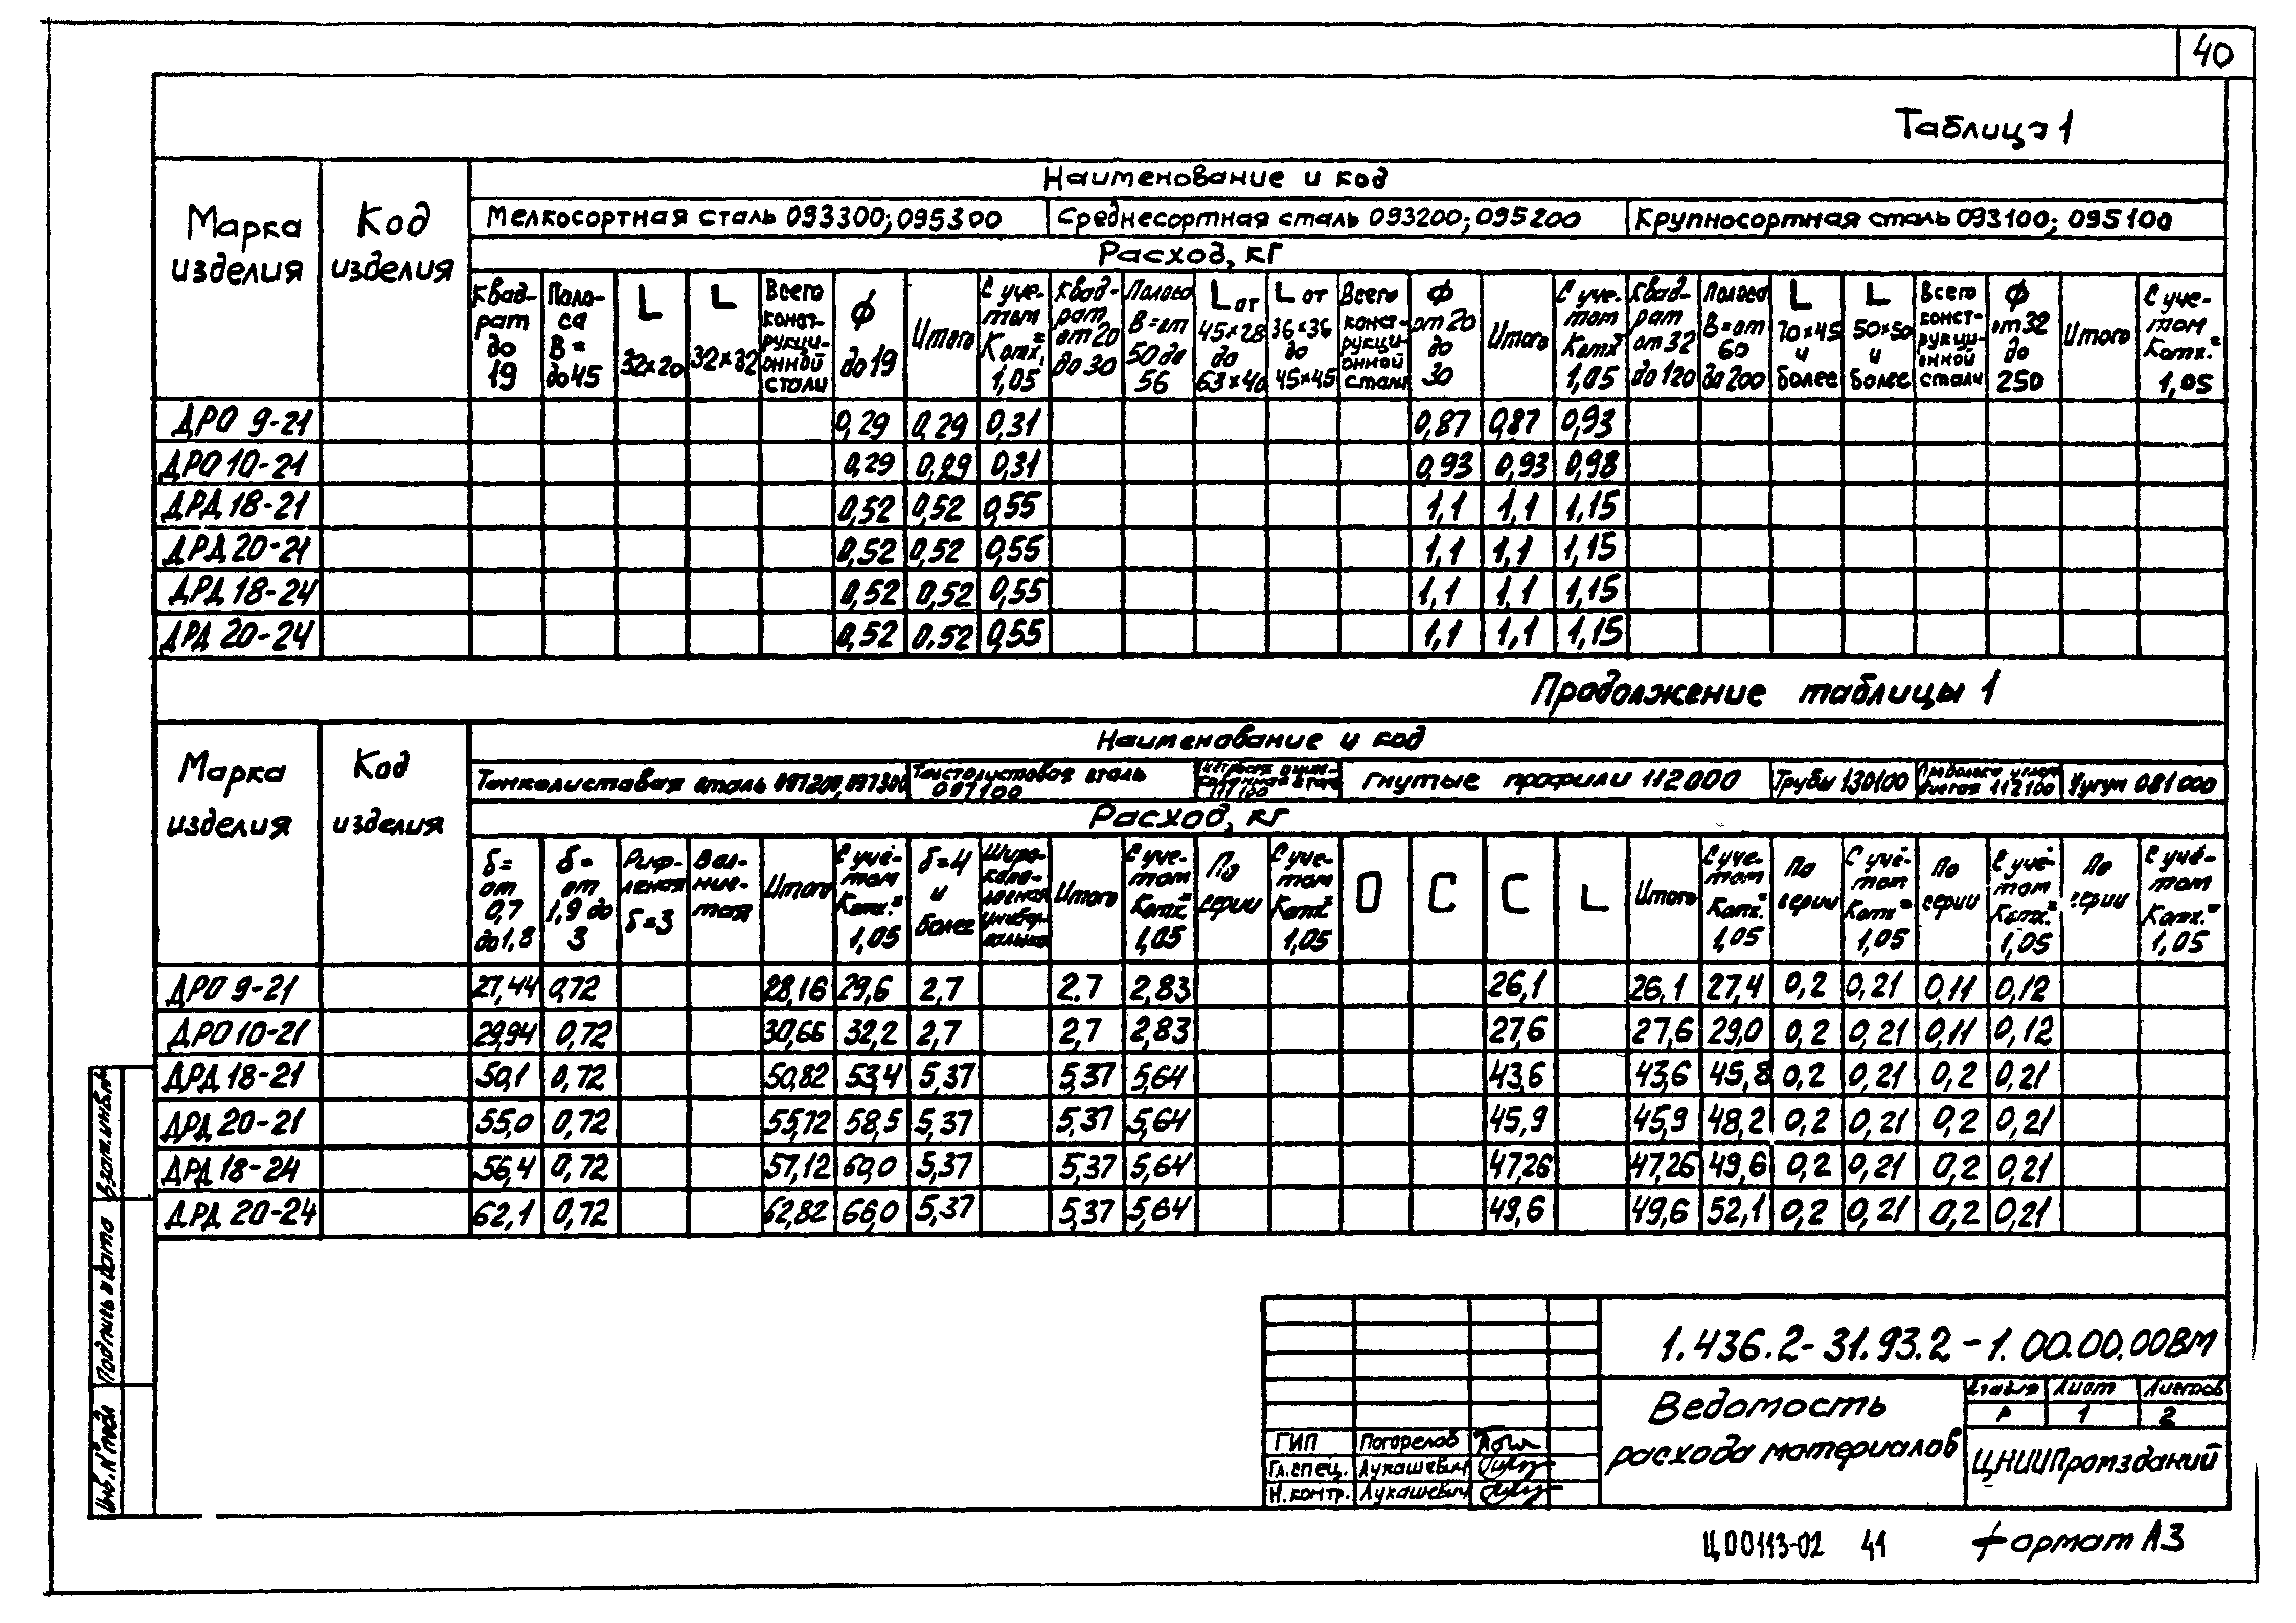 40
Таблица 1
Марка изделия
Код изделия
Наименование и код
Мелкосортная сталь 093300; 095300 Среднесортная сталь 093200; 095200 Крупносортная сталь 093100; 095100
Расход, кг
Квадрат до 19
Полоса В= до 45
L 32×20
L 32×32
Всего конструкционной стали
ф до 19
Итого
С учетом Котх.= 1,05
Квадрат от 20 до 30
Полоса В=от 50 до 56
L от 45×28 до 63×40
L от 36×36 до 45×45
Всего конструкционной стали
ф от 20 до 30
Итого
С учетом Котх= 1,05
Квадрат от 32 до 120
Полоса В=от 60 до 200
L 70×45 и более
L 50×50 и более
Всего конструкционной стали
ф от 32 до 250
Итого
С учетом Котх.= 1,05
ДРО 9-21 0,29 0,29 0,31 0,87 0,87 0,93
ДРО 10-21 0,29 0,29 0,31 0,93 0,93 0,98
ДРД 18-21 0,52 0,52 0,55 1,1 1,1 1,15
ДРД 20-21 0,52 0,52 0,55 1,1 1,1 1,15
ДРД 18-24 0,52 0,52 0,55 1,1 1,1 1,15
ДРД 20-24 0,52 0.52 0,55 1,1 1,1 1,15
Продолжение таблицы 1
Марка изделия
Код изделия
Наименование и код
Тонколистовая сталь 097200, 097300 Толстолистовая сталь 097100 гнутые профили 112000 Трубы 130100 112100 Чугун 081000
Расход, кг
δ= от 0,7 до 1,8
δ= от 1,9 до 3
Рифленая δ=3
Волнистая
Итого
С учётом Котх.= 1,05
δ=4 и более
Широкополосная универсальная
Итого
С учетом Котх= 1,05
По серии
С учетом Котх= 1,05
С
С
L
Итого
С учетом Котх.= 1,05
По серии
С учётом Котх= 1,05
По серии
С учётом Котх.= 1,05
По серии
С учётом Котх.= 1,05
ДРО 9-21 27,44 0,72 28,16 29,6 2,7 2.7 2,83 26,1 26,1 27,4 0,2 0,21 0,11 0,12
ДРО 10-21 29,94 0,72 30,66 32,2 2,7 2,7 2,83 27,6 27,6 29,0 0,2 0,21 0,11 0,12
ДРД 18-21 50,1 0,72 50,82 53,4 5,37 5,37 5,64 43,6 43,6 45,8 0,2 0,21 0,2 0,21
ДРД 20-21 55,0 0,72 55,72 58,5 5,37 5,37 5,64 45,9 45,9 48,2 0,2 0,21 0,2 0,21
ДРД 18-24 56,4 0,72 57,12 60,0 5,37 5,37 5,64 47,26 47,26 49,6 0,2 0,21 0,2 0,21
ДРД 20-24 62,1 0,72 62,82 66,0 5,37 5,37 5,64 49,6 49,6 52,1 0,2 0,21 0,2 0,21
Взам.инв.№
Подпись и дата
Инв.№ подл
1.436.2-31.93.2-1.00.00.00ВМ
Ведомость расхода материалов
Стадия Лист Листов
Р 1 2
ЦНИИПромзданий
ГИП Погорелов
Гл.спец. Лукашевич
Н.контр. Лукашевич
Ц00113-02 41 Формат А3